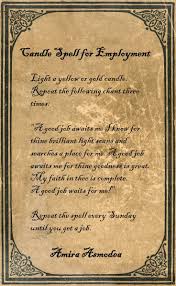 Candle Spell for Employment
Light a yellow or gold candle.
Repeat the following chant three
times:
"A good job awaits me I know for
thine brilliant light scans and
searches a place for me. A good job
awaits me for thine goodness is great.
My faith in thee is complete.
A good job waits for me!"
Repeat the spell every Sunday
until you get a job.
Amira Asmodou